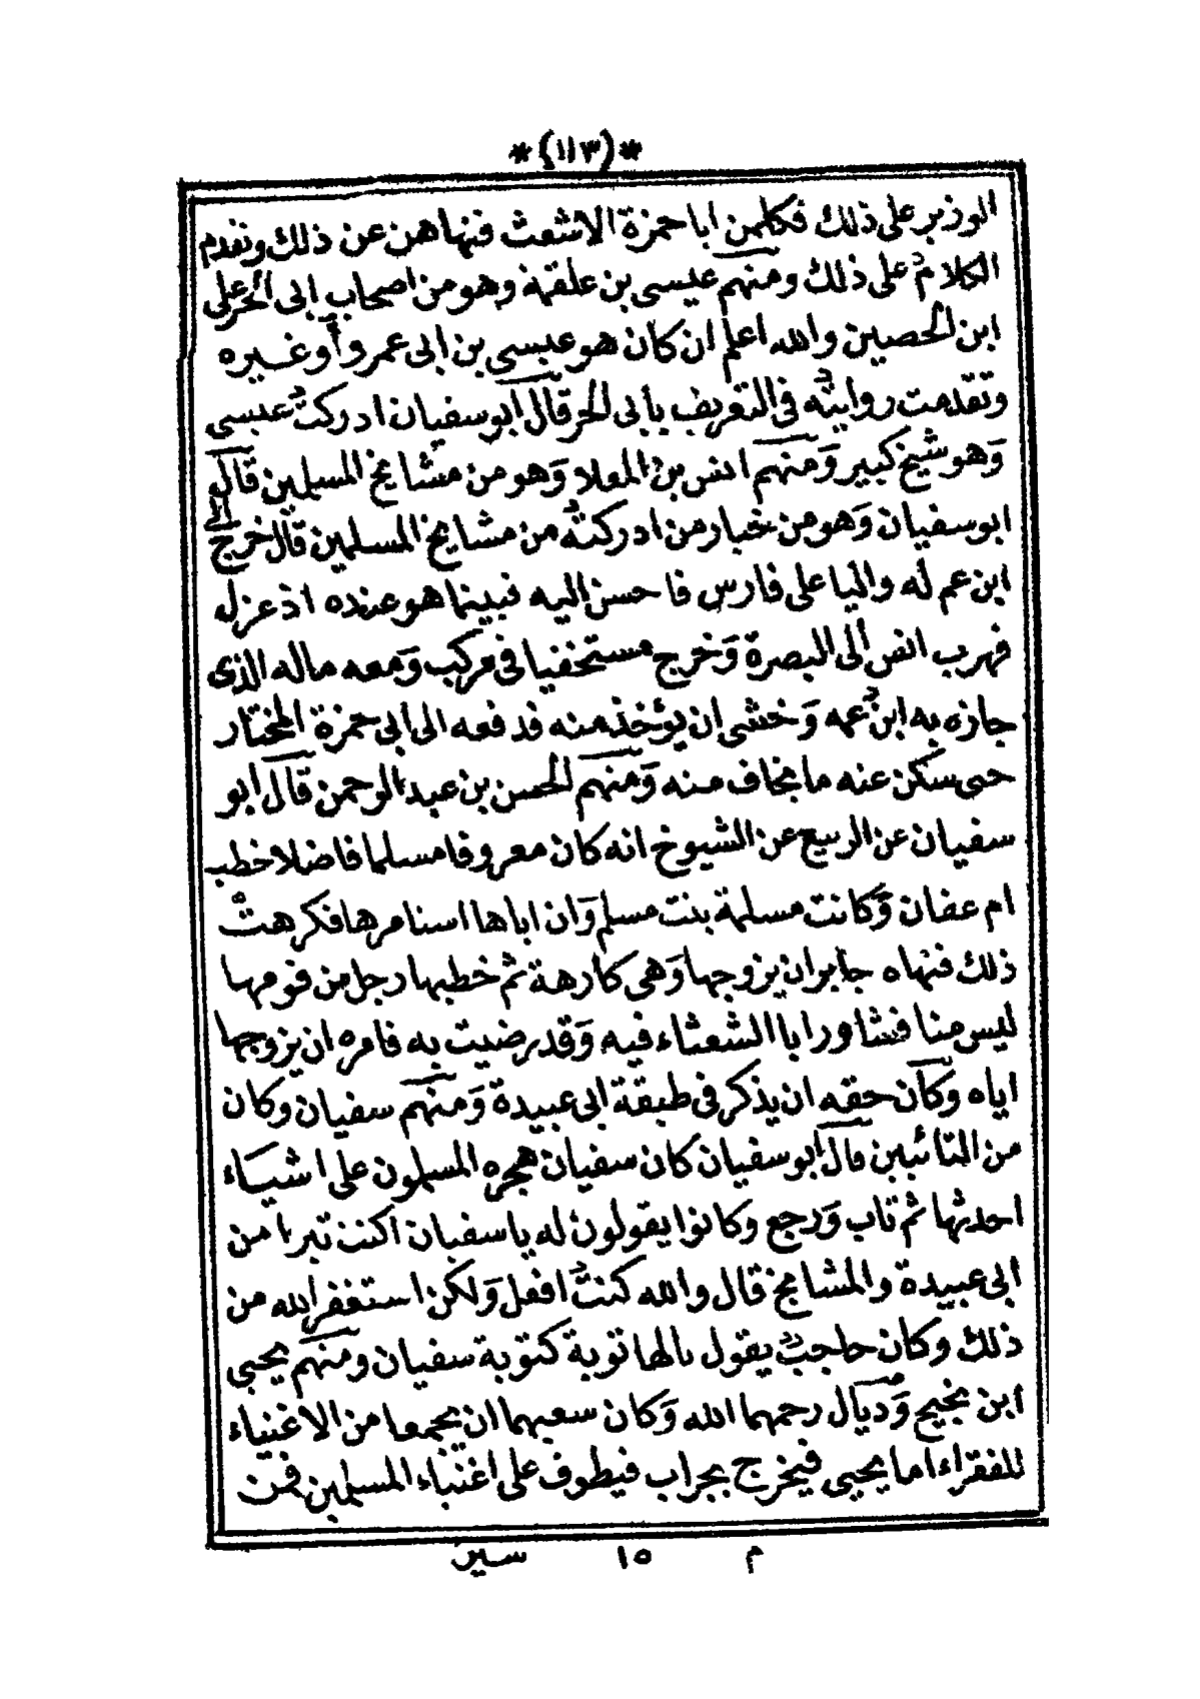 *(١١٣)*
الوزير على ذلك فكلمن ابا حمزة الاشعث فنهاهن عن ذلك وتقدم
الكلام على ذلك ومنهم عيسى بن علقمة وهو من اصحاب ابى الحر على
ابن الحصين والله اعلم ان كان هو عيسى بن ابى عمرو أو غيره
وتقدمت روايته فى التعريف بأبى الحر قال ابو سفيان ادركت عيسى
وَهو شيخ كبير وَمنهم انس بن المعلا وَهو من مشايخ المسلمين قال
ابو سفيان وَهو من خيار من ادركته من مشايخ المسلمين قال خرج الى
ابن عم له واليا على فارس فاحسن اليه فبينما هو عنده اذ عزل
فهرب انس الى البصرة وَخرج مستخفيا فى مركب وَمعه ماله الذى
جازه به ابن عمه وَخشى ان يؤخذ منه فدفعه الى أبى حمزة المختار
حتى سكن عنه ما يخاف منه وَمنهم الحسن بن عبد الرحمن قال ابو
سفيان عن الربيع عن الشيوخ انه كان معروفا مسلما فاضلا خطب
ام عفان وَكانت مسلمة بنت مسلم وَان اباها اسنامرها فكرهت
ذلك فنهاه جابر ان يزوجها وَهى كارهة ثم خطبها رجل من قومها
ليس منا فشاور ابا الشعثاء فيه وَقد رضيت به فامره ان يزوجها
اياه وَكان حقه ان يذكر فى طبقة ابى عبيدة وَمنهم سفيان وكان
من التائبين قال ابو سفيان كان سفيان هجره المسلمون على اشياء
احدثها ثم تاب وَرجع وكانوا يقولون له يا سفيان اكنت تبرا من
ابى عبيدة والمشايخ قال والله كنت افعل وَلكن استغفر الله من
ذلك وكان حاجب يقول يالها توبة كتوبة سفيان ومنهم يحيى
ابن نجيح وَديال رحمهما الله وَكان سعيهما ان يجمعا من الاغنياء
للفقراء اما يحيى فيخرج بجراب فيطوف على اغنياء المسلمين فمن
م ١٥ سير